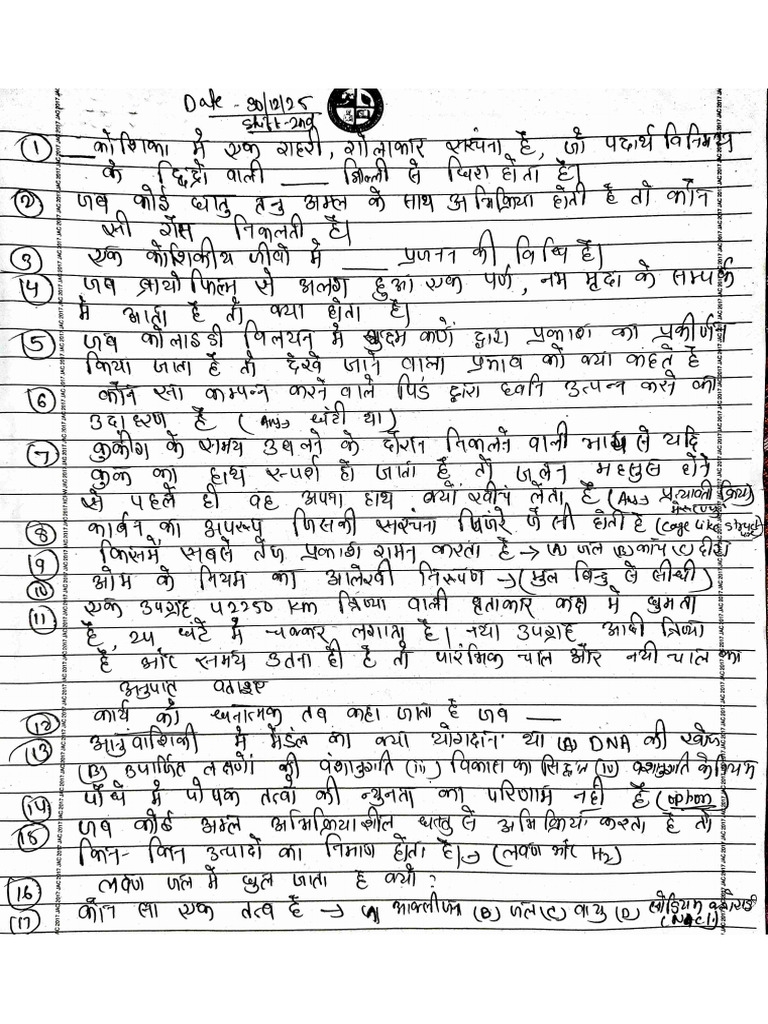 Date - 30/12/25
Shift-2nd
(1) __ कोशिका में एक गहरी, गोलाकार संरचना है, जो पदार्थ विनिमय
के छिद्रों वाली ___ झिल्ली से घिरा होता है।
(2) जब कोई धातु तनु अम्ल के साथ अभिक्रिया होती है तो कौन
सी गैस निकलती है।
(3) एक कोशिकीय जीवों में ___ प्रजनन की विधि है।
(4) जब ब्रायोफिल्म से अलग हुआ एक पर्ण, नम मृदा के सम्पर्क
में आता है तो क्या होता है।
(5) जब कोलाइडी विलयन में सुक्ष्म कणों द्वारा प्रकाश का प्रकीर्णन
किया जाता है तो देखे जाने वाला प्रभाव को क्या कहते है
(6) कौन सा कम्पन्न करने वाले पिंड द्वारा ध्वनि उत्पन्न करने का
उदाहरण है (Ans घंटी था)
(7) कुकींग के समय उबलने के दौरान निकलने वाली भाप से यदि
कुक का हाथ स्पर्श हो जाता है तो जलन महसुस होने
से पहले ही वह अपना हाथ क्यों खींच लेता है (Ans प्रत्यावर्ती क्रिया)
(8) कार्बन का अपरूप जिसकी संरचना पिंजरे जैसी होती है (Cage like
(9) किसमें सबसे तेज प्रकाश गमन करता है → (A) जल (B) कांच (C) हीरा
(10) ओम के नियम का आलेखी निरूपण → (मुल बिन्दु से सीधी)
(11) एक उपग्रह 42250 km त्रिज्या वाली वृताकार कक्ष में घुमता
है, 24 घंटे में चक्कर लगाता है। नया उपग्रह आधी त्रिज्या
है और समय उतना ही है तो प्रारंभिक चाल और नयी चाल का
अनुपात बताइए
(12) कार्य को धनात्मक तब कहा जाता है जब ___
(13) आनुवांशिकी में मेंडल का क्या योगदान था (A) DNA की खोज
(B) उपार्जित लक्षणों की वंशानुगति (iii) विकास का सिद्धांत (iv) वंशानुगति के नियम
(14) पौधे में पोषक तत्वों की न्युनता का परिणाम नहीं है (option)
(15) जब कोई अम्ल अभिक्रियाशील धातु से अभिक्रिया करता है तो
किन-किन उत्पादों का निर्माण होता है। → (लवण और H2)
(16) लवण जल में घुल जाता है क्यों?
(17) कौन सा एक तत्व है → (A) आक्सीजन (B) जल (C) वायु (D) सोडियम क्लोराइड
(NaCl)